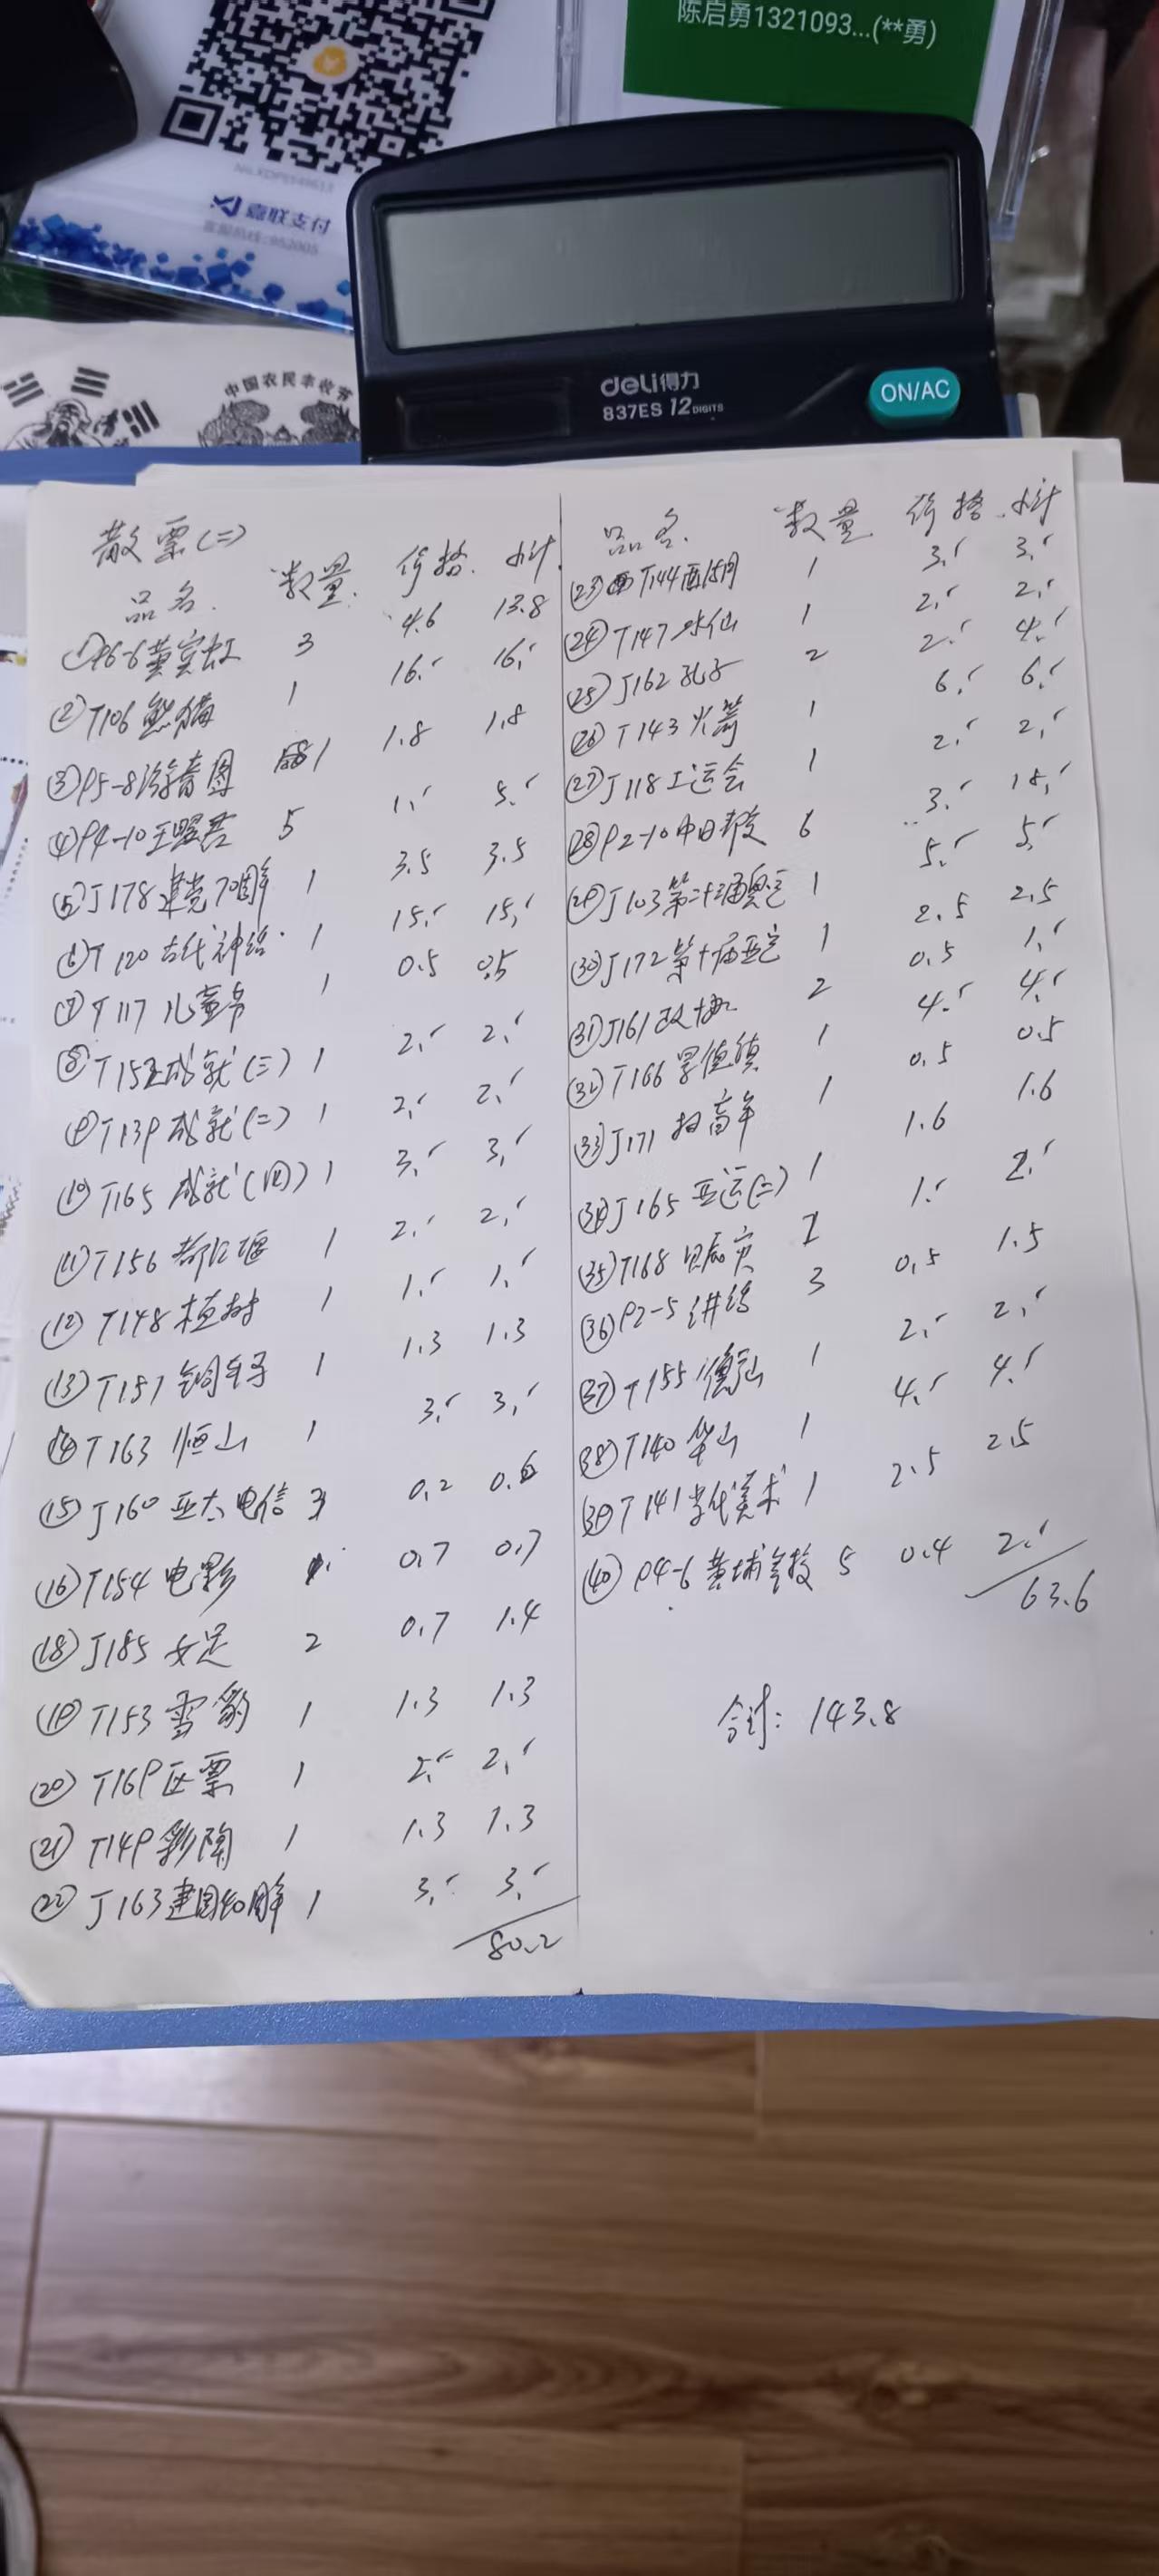 陈启勇1321093...(**勇)
嘉联支付
中国农民丰收节
deli得力
837ES 12 DIGITS
ON/AC
散票(二)
品名. 数量. 价格. 小计.
①96-6黄宾虹 3 4.6 13.8
②T106熊猫 1 16.- 16.-
③95-8游春图 1 1.8 1.8
④94-10王昭君 5 1.- 5.-
⑤J178建党70周年 1 3.5 3.5
⑥T120古代神话 1 15.- 15.-
⑦T117儿童节 1 0.5 0.5
⑧T152成就(三) 1 2.- 2.-
⑨T139成就(二) 1 2.- 2.-
⑩T165成就(四) 1 3.- 3.-
⑪T156都江堰 1 2.- 2.-
⑫T148植树 1 1.- 1.-
⑬T151铜车马 1 1.3 1.3
⑭T163恒山 1 3.- 3.-
⑮J160亚太电信 3 0.2 0.6
⑯T154电影 1 0.7 0.7
⑱J185女足 2 0.7 1.4
⑲T153雪豹 1 1.3 1.3
⑳T169医票 1 2.- 2.-
㉑T149彩陶 1 1.3 1.3
㉒J163建国40周年 1 3.- 3.-
80.2
品名. 数量 价格. 小计
㉓T144西湖 1 3.- 3.-
㉔T147水仙 1 2.- 2.-
㉕J162孔子 2 2.- 4.-
㉖T143火箭 1 6.- 6.-
㉗J118工运会 1 2.- 2.-
㉘92-10中日邦交 6 3.- 18.-
㉙J103第二十三届奥运 1 5.- 5.-
㉚J172第十一届亚运 1 2.5 2.5
㉛J161政协 2 0.5 1.-
㉜T166景德镇 1 4.- 4.-
㉝J171扫盲年 1 0.5 0.5
㉞J165亚运(二) 1 1.6 1.6
㉟T168赈灾 2 1.- 2.-
㊱92-5讲话 3 0.5 1.5
㊲T155衡山 1 2.- 2.-
㊳T140华山 1 4.- 4.-
㊴T141当代美术 1 2.5 2.5
㊵94-6黄埔军校 5 0.4 2.-
63.6
合计: 143.8